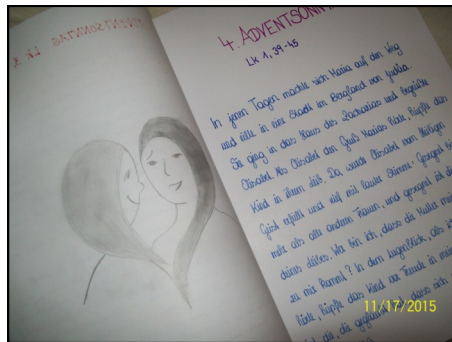 4. ADVENTSONN
Lk 1, 39-45
In jenen Tagen machte sich Maria auf den Weg
und eilte in eine Stadt im Bergland von Judäa.
Sie ging in das Haus des Zacharias und begrüßte
Elisabet. Als Elisabet den Gruß Marias hörte, hüpfte das
Kind in ihrem Leib. Da wurde Elisabet vom Heiligen
Geist erfüllt und rief mit lauter Stimme: Gesegnet bi
mehr als alle anderen Frauen, und gesegnet ist di
deines Leibes. Wer bin ich, dass die Mutter mei
zu mir kommt? In dem Augenblick, als i
hörte, hüpfte das Kind vor Freude in mei
ist die, die geglaubt hat, dass sich
11/17/2015